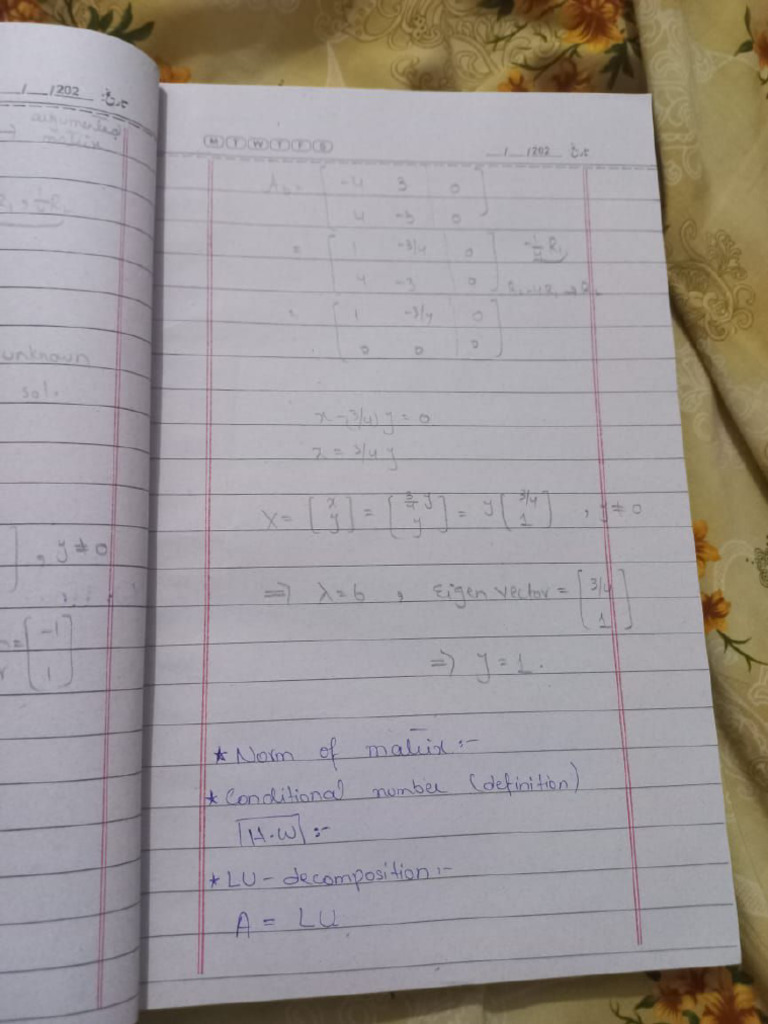 __/__/202__
argumented
matrix
unknown
sol.
, y ≠ 0
[-1
1]
M T W T F S
__/__/202__
Ab = [-4 3 0
4 -3 0]
= [1 -3/4 0
4 -3 0] -1/4 R1
= [1 -3/4 0
0 0 0]
x-(3/4)y = 0
x = 3/4 y
X = [x y] = [3/4 y y] = y [3/4 1] , y ≠ 0
=> λ=6 , Eigen vector = [3/4 1]
=> y = 1.
* Norm of matrix :-
* Conditional number (definition)
H.W :-
* LU - decomposition :-
A = LU